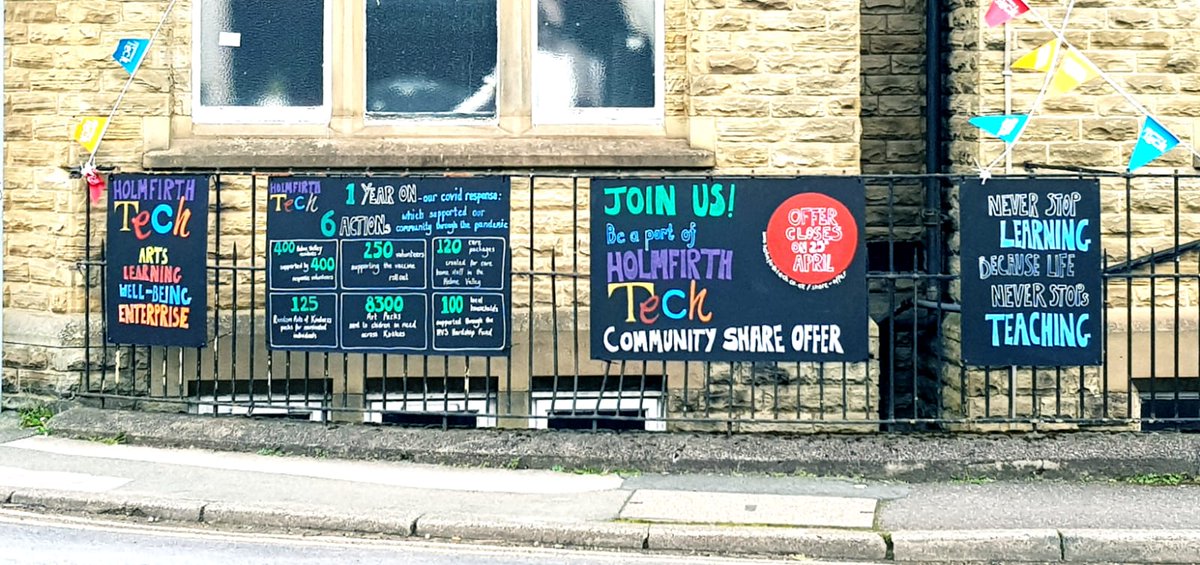 HOLMFIRTH
TECH
ARTS
LEARNING
WELL-BEING
ENTERPRISE
HOLMFIRTH
TECH
1 YEAR ON - our covid response:
6 ACTIONS which supported our
community through the pandemic
400 Holme Valley
residents
supported by 400
volunteers
250 volunteers
supporting the vaccine
roll out
120 care
packages
created for care
home staff in the
Holme Valley
125
Random Acts of Kindness
packs for nominated
individuals
8300
Art Packs
sent to children in need
across Kirklees
100 local
households
supported through the
Hardship Fund
JOIN US!
Be a part of
HOLMFIRTH
TECH
COMMUNITY SHARE OFFER
OFFER
CLOSES
ON 25th
APRIL
NEVER STOP
LEARNING
BECAUSE LIFE
NEVER STOPS
TEACHING